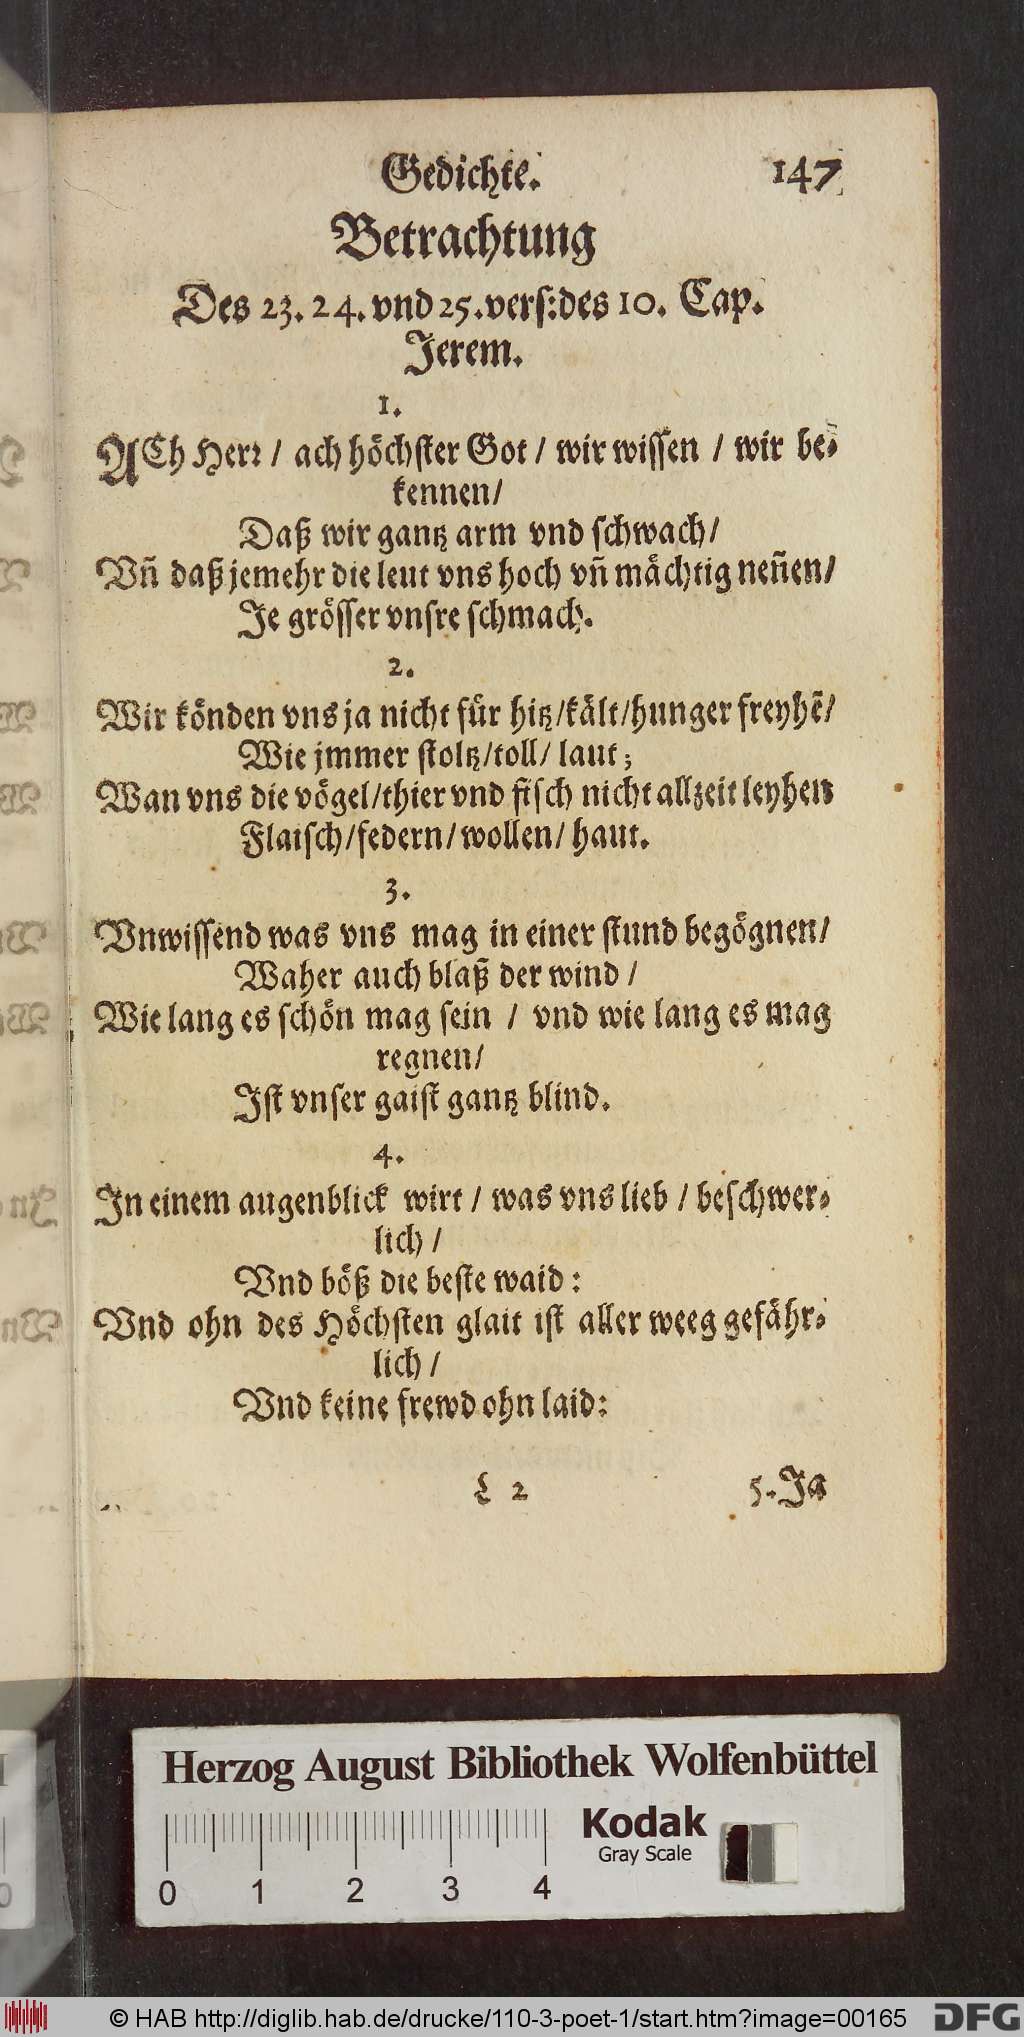 Gedichte. 147
Betrachtung
Des 23. 24. vnd 25. vers: des 10. Cap.
Jerem.
1.
ACh Herr / ach höchster Got / wir wissen / wir be-
kennen /
Daß wir gantz arm vnd schwach /
Vñ daß jemehr die leut vns hoch vñ mächtig neñen /
Je grösser vnsre schmach.
2.
Wir könden vns ja nicht für hitz / kält / hunger freyhẽ /
Wie jmmer stoltz / toll / laut ;
Wan vns die vögel / thier vnd fisch nicht allzeit leyhen
Flaisch / federn / wollen / haut.
3.
Vnwissend was vns mag in einer stund begögnen /
Waher auch blaß der wind /
Wie lang es schön mag sein / vnd wie lang es mag
regnen /
Ist vnser gaist gantz blind.
4.
In einem augenblick wirt / was vns lieb / beschwer-
lich /
Vnd böß die beste waid :
Vnd ohn des Höchsten glait ist aller weeg gefähr-
lich /
Vnd keine frewd ohn laid :
L 2 5. Ja
Herzog August Bibliothek Wolfenbüttel
Kodak
Gray Scale
0 1 2 3 4
© HAB http://diglib.hab.de/drucke/110-3-poet-1/start.htm?image=00165
DFG